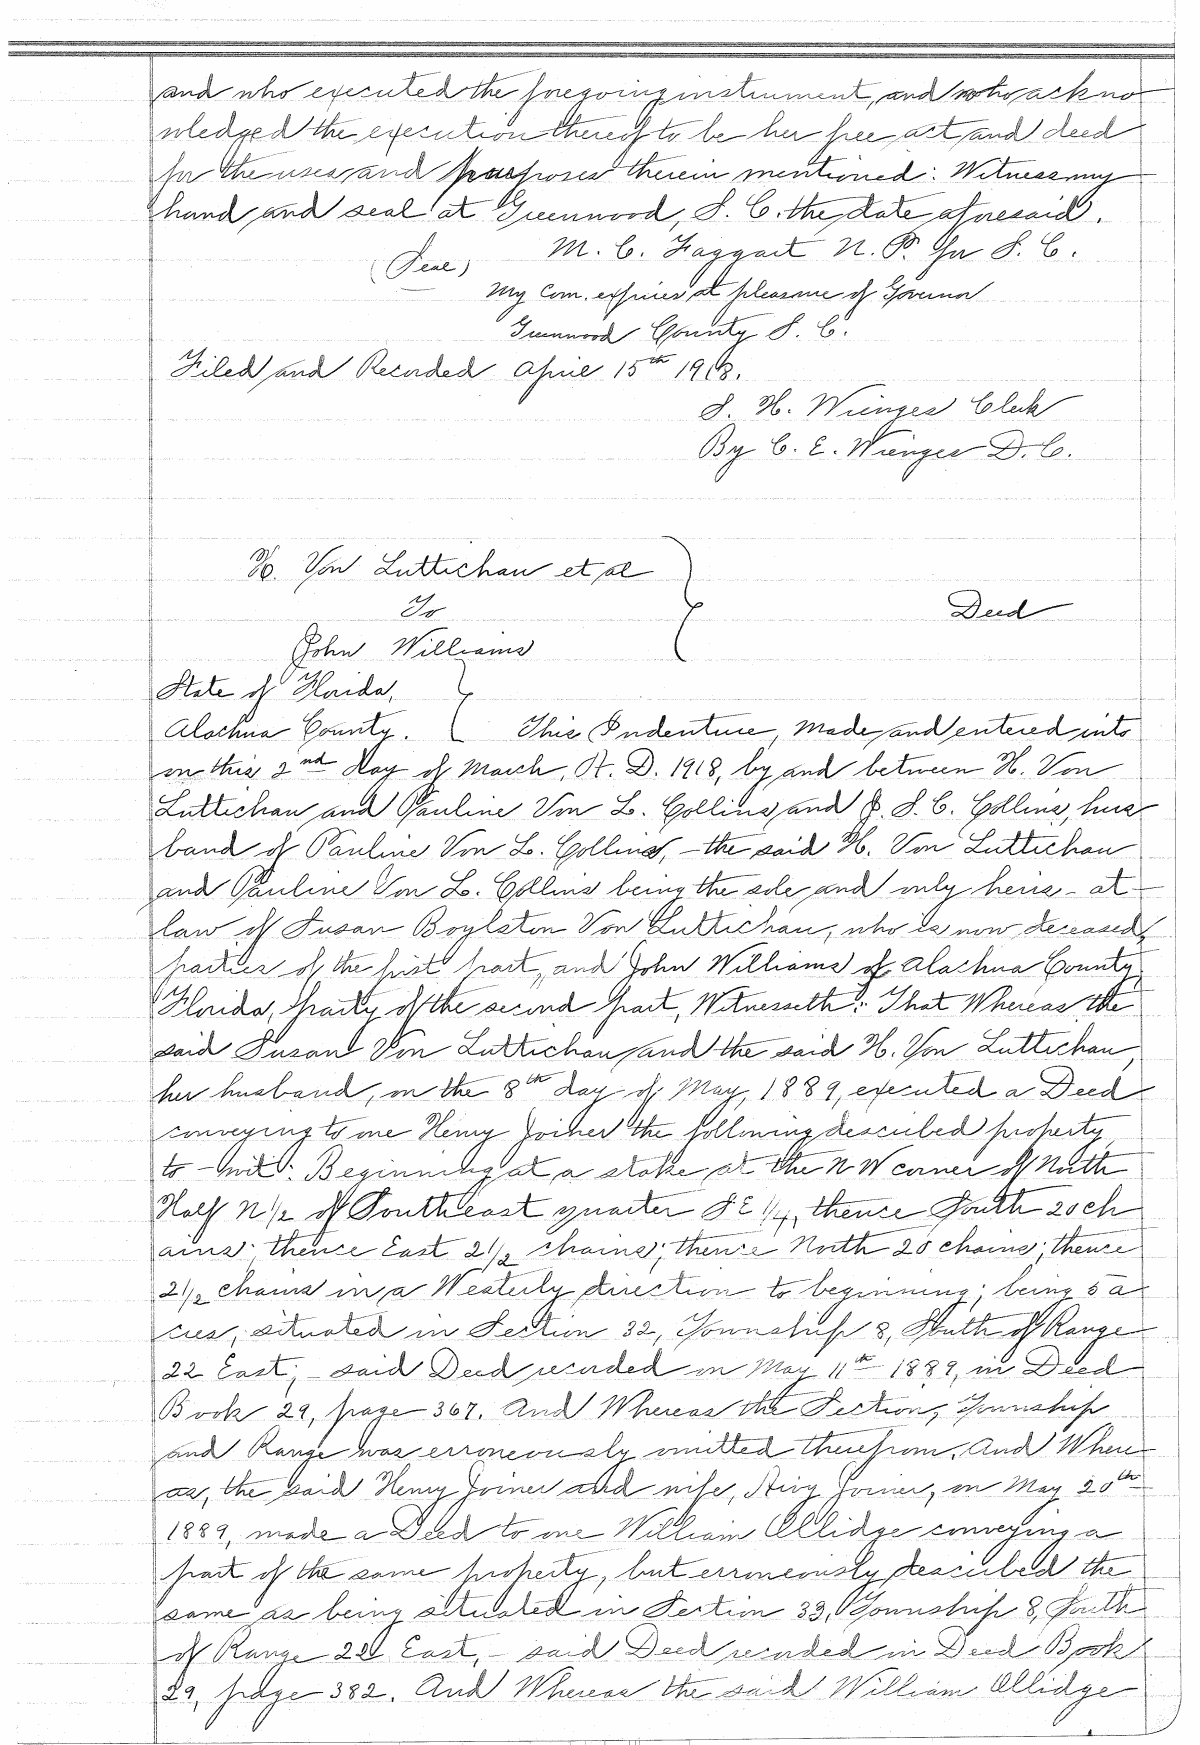 and who executed the foregoing instrument, and who ackno
wledged the execution thereof to be her free act and deed
for the uses and purposes therein mentioned: Witness my
hand and seal at Greenwood, S. C. the date aforesaid.
M. C. Taggart N. P. for S. C.
(Seal)
My Com. expires at pleasure of Governor
Greenwood County S. C.
Filed and Recorded April 15th 1918.
S. H. Wienges Clerk
By C. E. Wienges D. C.
H. Von Luttichau et al
To
Deed
John Williams
State of Florida,
Alachua County. This Indenture, Made and entered into
on this 2nd day of March, A. D. 1918, by and between H. Von
Luttichau and Pauline Von L. Collins and S. C. Collins, hus
band of Pauline Von L. Collins, - the said H. Von Luttichau
and Pauline Von L. Collins being the sole and only heirs - at -
law of Susan Boylston Von Luttichau, who is now deceased,
parties of the first part, and John Williams of Alachua County,
Florida, party of the second part, Witnesseth: That Whereas the
said Susan Von Luttichau and the said H. Von Luttichau,
her husband, on the 8th day of May, 1889, executed a Deed
conveying to one Henry Joiner the following described property,
to - wit: Beginning at a stake at the N W corner of North
Half N 1/2 of Southeast quarter S E 1/4, thence South 20 ch
ains; thence East 2 1/2 chains; thence North 20 chains; thence
2 1/2 chains in a Westerly direction to beginning; being 5 a
cres, situated in Section 32, Township 8, South of Range
22 East; - said Deed recorded on May 11th 1889, in Deed
Book 29, page 367. And Whereas the Section, Township
and Range was erroneously omitted therefrom. And Where
as, the said Henry Joiner and wife, Airy Joiner, on May 20th
1889, made a Deed to one William Ollidge conveying a
part of the same property, but erroneously described the
same as being situated in Section 33, Township 8, South
of Range 22 East, - said Deed recorded in Deed Book
29, page 382. And Whereas the said William Ollidge